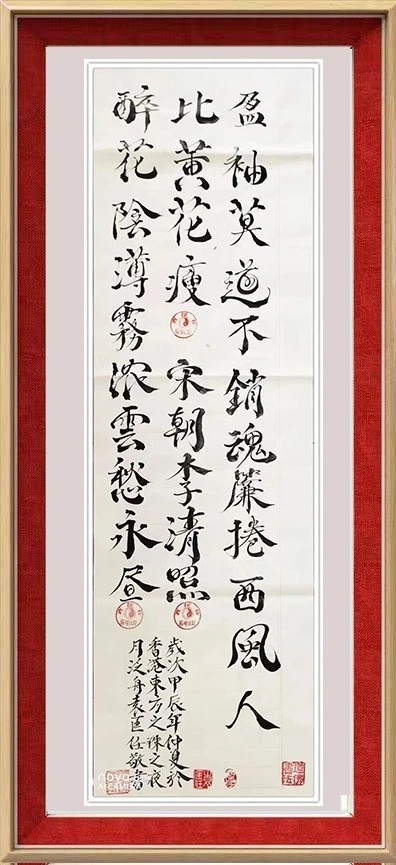 盈袖莫道不銷魂簾捲西風人
比黃花瘦 宋朝李清照
醉花陰薄霧濃雲愁永昼
歲次甲辰年仲夏於
香港東方之珠之夜
月泛舟袁匡任敬書
nova